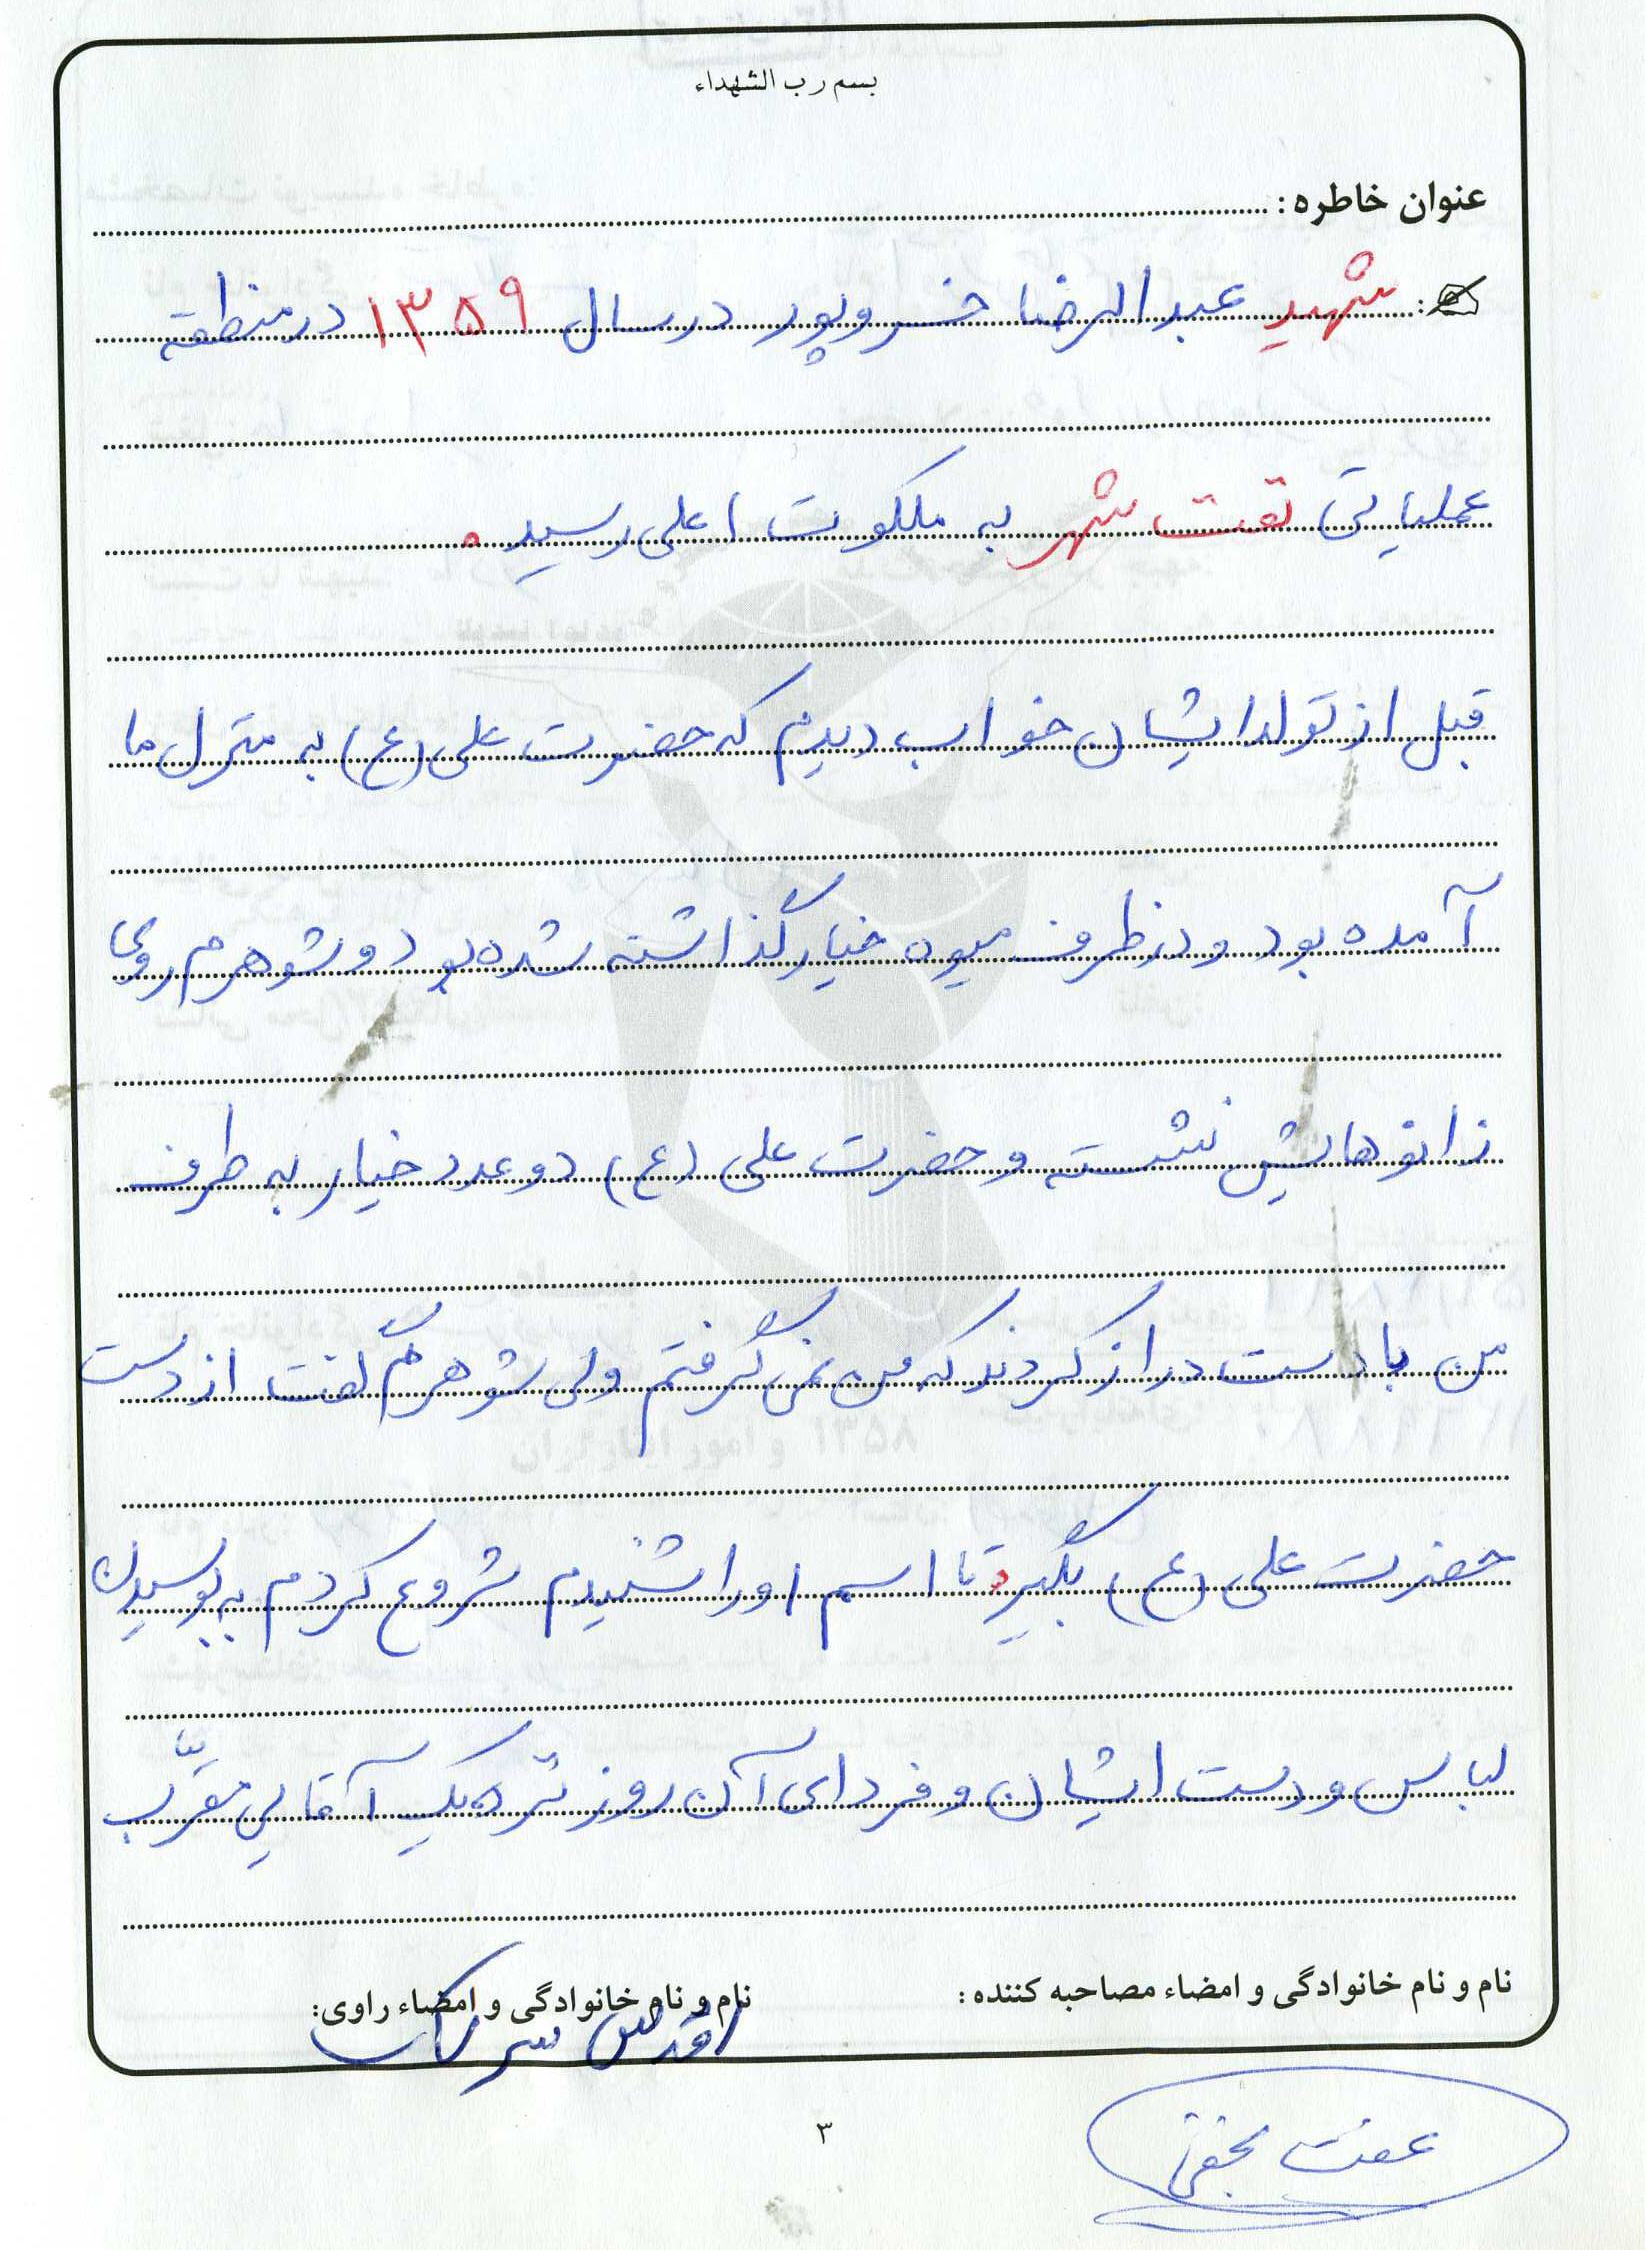 بسم رب الشهداء
عنوان خاطره :
شهید عبدالرضا خسروپور در سال ۱۳۵۹ در منطقه
عملیاتی تفت شهر به ملکوت اعلی رسید.
قبل از تولد ایشان خواب دیدم که حضرت علی (ع) به منزل ما
آمده بود و در ظرف میوه خیار گذاشته شده بود و شوهرم روی
زانوهایش نشسته و حضرت علی (ع) دو عدد خیار به طرف
من با دست دراز کردند که من نمی گرفتم ولی شوهرم گفت از دست
حضرت علی (ع) بگیر. تا اسم او را شنیدم شروع کردم به بوسیدن
لباس و دست ایشان و فردای آن روز نزد یک آقایی مقرّب
نام و نام خانوادگی و امضاء مصاحبه کننده :
نام و نام خانوادگی و امضاء راوی:
اقدس
۳
عفت نجفی